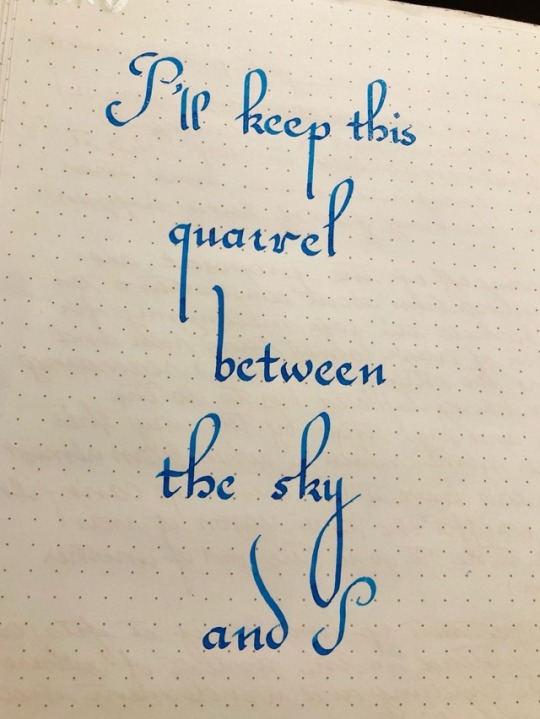 I'll keep this
quarrel
between
the sky
and I